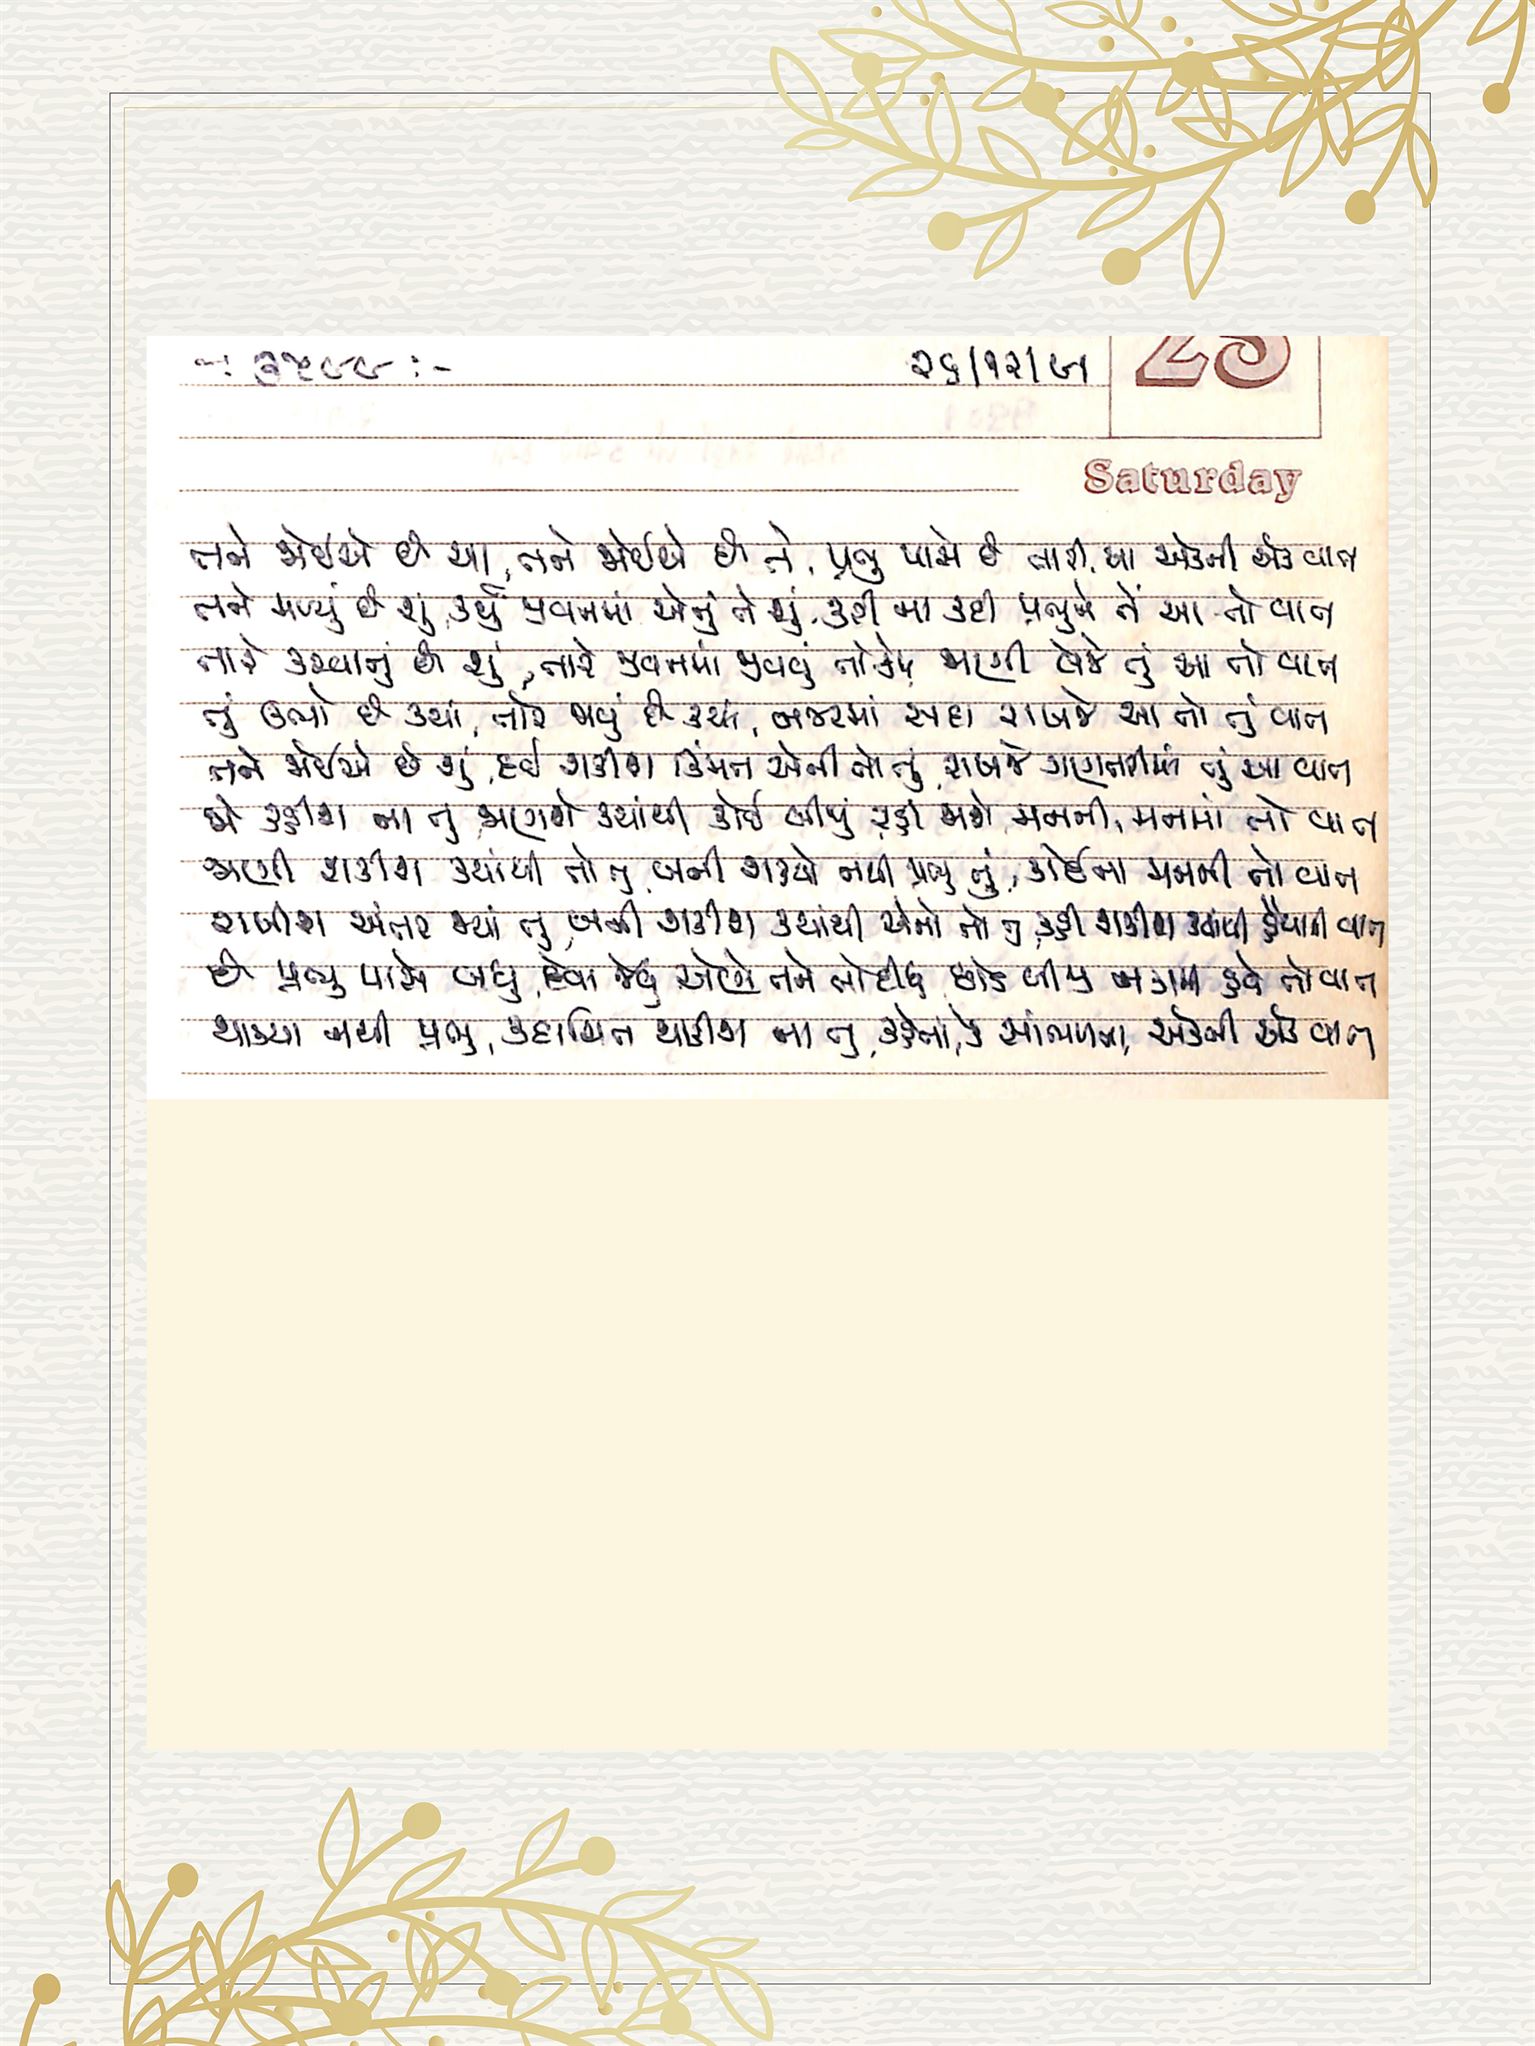 ૨૬/૧૨/
Saturday
તને જોઈએ છે આ, તને જોઈએ છે તે, પ્રભુ પાસે છે તારી, આ એકની એક વાત
તને મળ્યું છે શું, કર્યું જીવનમાં એનું તેં શું, કરી ના કદી પ્રભુને તેં આ તો વાત
તારે કરવાનું છે શું, તારે જીવનમાં જીવવું તો કેમ, જાણી લેજે તું આ તો વાત
તું ઊભો છે ક્યાં, તારે જાવું છે ક્યાં, નજરમાં સદા રાખજે આ તો તું વાત
તને જોઈએ છે શું, દઈ શકીશ કિંમત એની તો તું, રાખજે ગણતરીમાં તું આ વાત
જો કહીશ ના તું, જાણશે ક્યાંથી કોઈ બીજું, રહી જાશે મનની, મનમાં તો વાત
જાણી શકીશ ક્યાંથી તો તું, બની શક્યો નથી પ્રભુ તું, કોઈના મનની તો વાત
રાખીશ અંતર જ્યાં તું, બની શકીશ ક્યાંથી એનો તો તું, કહી શકીશ ક્યાંથી હૈયાની વાત
છે પ્રભુ પાસે બધું, દેવા જેવું એણે તને તો દીધું, છોડ બીજી હવે તો વાત
થાક્યા નથી પ્રભુ, કદાચિત થાકીશ ના તું, કહેતા, કે સાંભળતા, એકની એક વાત